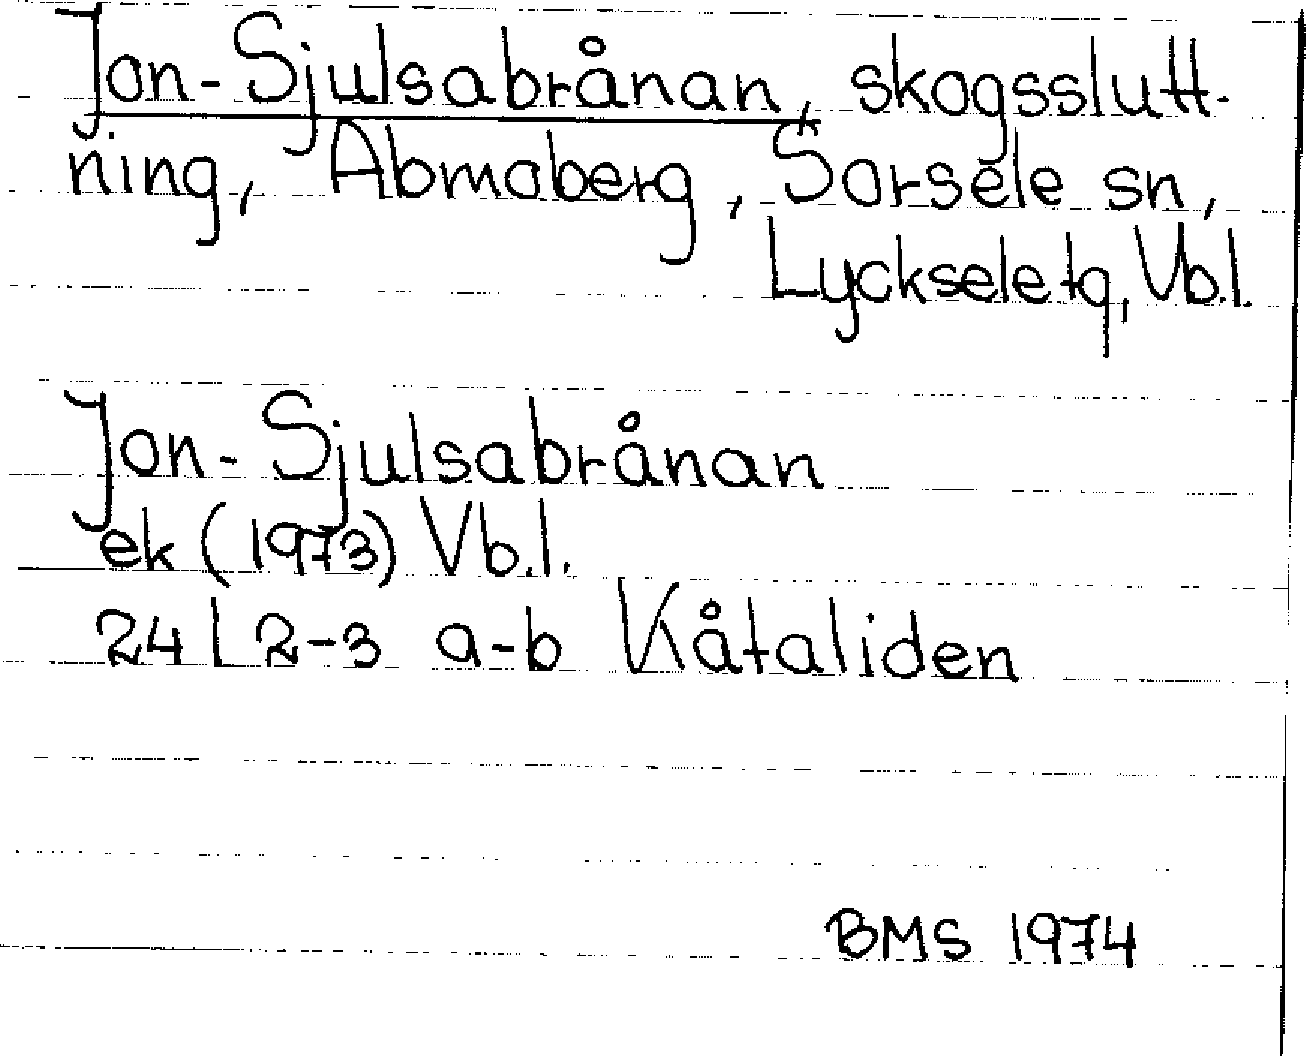 Jon-Sjulsabrånan, skogsslutt-
ning, Abmoberg, Sorsele sn,
Lycksele tg, Vb.l.
Jon-Sjulsabrånan
ek (1973) Vb.l.
24 I 2-3 a-b Kåtaliden
BMS 1974